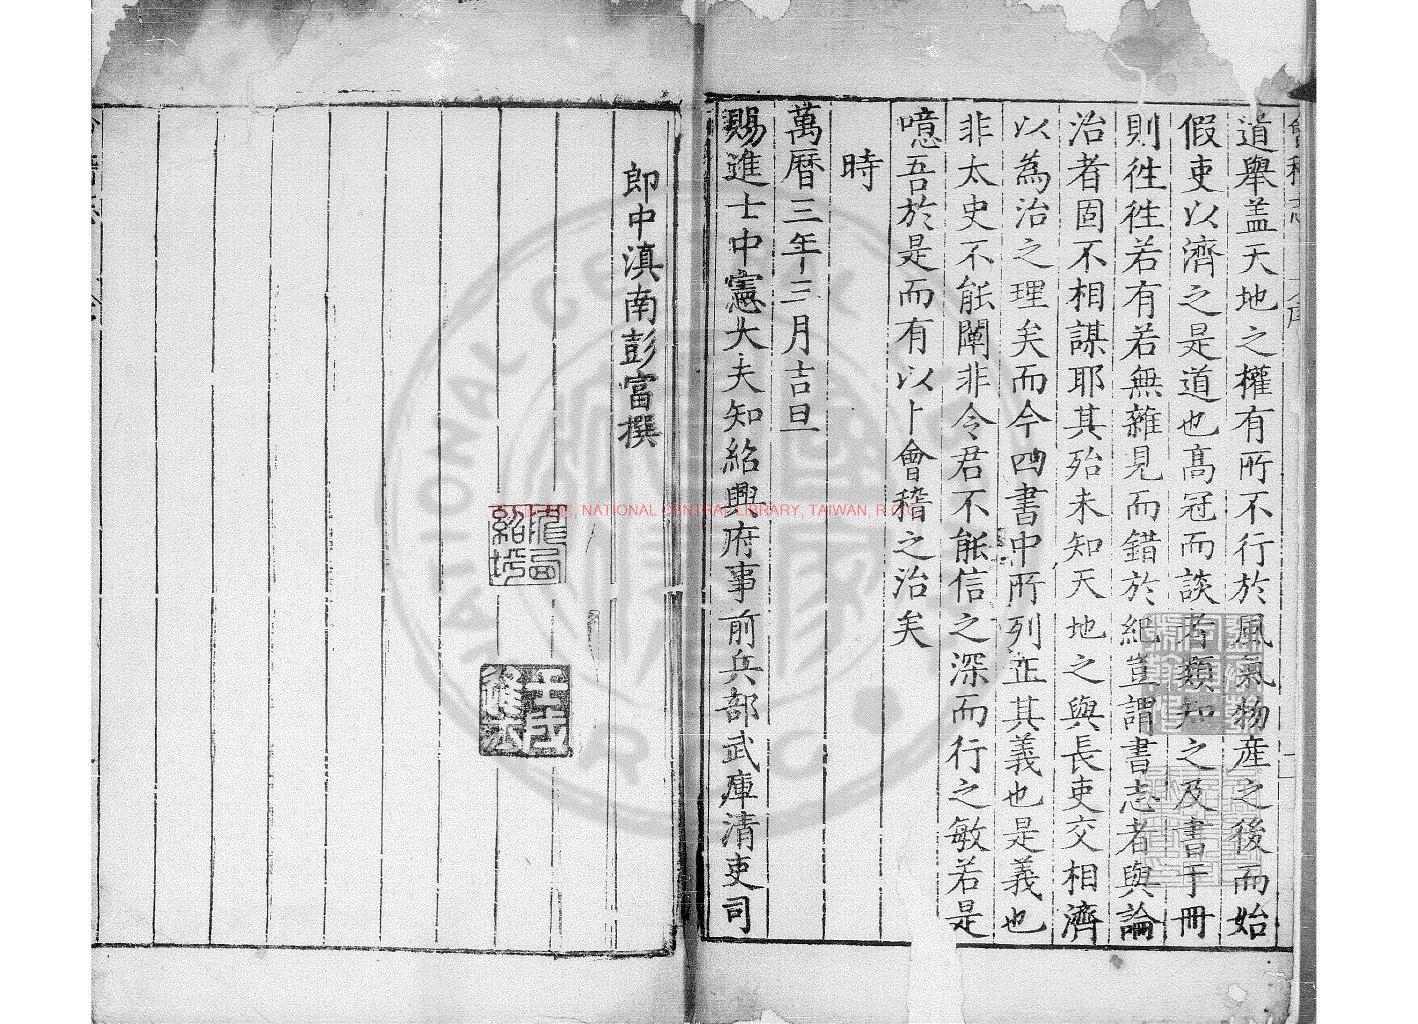 道舉蓋天地之權有所不行於風氣物產之後而始
假吏以濟之是道也高冠而談者類知之及書于冊
則徃徃若有若無雜見而錯於紀豈謂書志者與論
治者固不相謀耶其殆未知天地之與長吏交相濟
以為治之理矣而今四書中所列正其義也是義也
非太史不能闡非令君不能信之深而行之敏若是
噫吾於是而有以卜會稽之治矣
時
萬曆三年三月吉旦
賜進士中憲大夫知紹興府事前兵部武庫清吏司
郎中滇南彭富撰
NATIONAL CENTRAL LIBRARY, TAIWAN, R.O.C